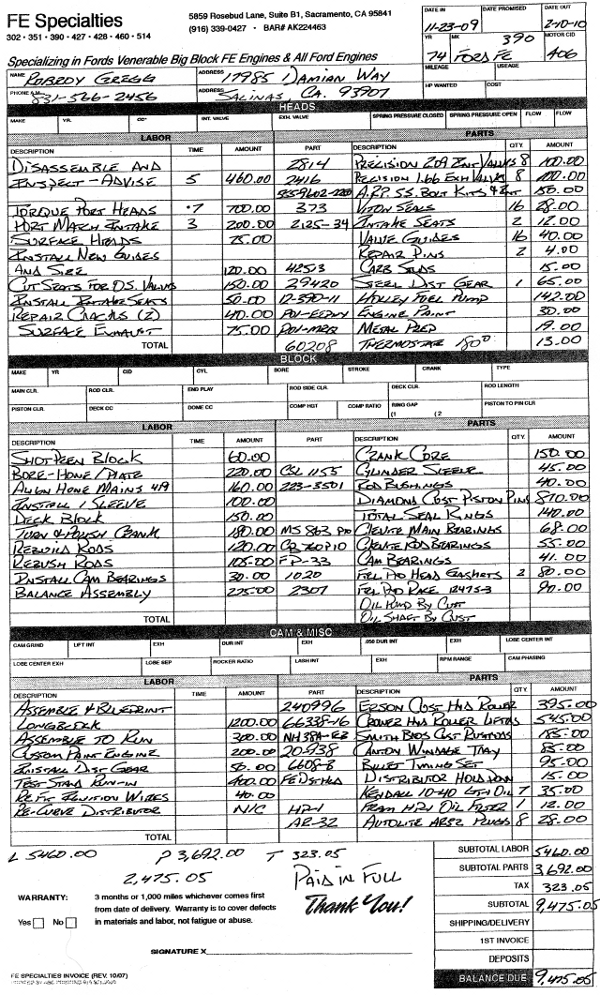 FE Specialties
302 • 351 • 390 • 427 • 428 • 460 • 514
5859 Rosebud Lane, Suite B1, Sacramento, CA 95841
(916) 339-0427 • BAR# AK224463
DATE IN DATE PROMISED DATE OUT
11-23-09 2-10-10
YR. MK 390 MOTOR CID
74 FORD FE 406
MILEAGE USEAGE
HP WANTED COST
Specializing in Fords Venerable Big Block FE Engines & All Ford Engines
NAME GREGG ADDRESS 17985 DAMIAN WAY
PHONE 831-566-2456 ADDRESS SALINAS, CA. 93907
HEADS
MAKE YR. CC INT. VALVE EXH. VALVE SPRING PRESSURE CLOSED SPRING PRESSURE OPEN FLOW FLOW
LABOR PARTS
DESCRIPTION TIME AMOUNT PART DESCRIPTION QTY. AMOUNT
DISASSEMBLE AND 2814 PRECISION 2.09 INT VALVES 8 100.00
INSPECT - ADVISE 5 460.00 2416 PRECISION 1.66 EXH VALVES 8 100.00
A.R.P. S.S. BOLT KITS 150.00
TORQUE PORT HEADS .7 700.00 373 VITON SEALS 16 28.00
PORT MATCH INTAKE 3 200.00 2125-34 INTAKE SEATS 2 12.00
SURFACE HEADS 75.00 VALVE GUIDES 16 40.00
INSTALL NEW GUIDES REPAIR PINS 2 4.00
AND SIZE 120.00 42513 CARB STUDS 15.00
CUT SEATS FOR O.S. VALVES 150.00 29420 STEEL DIST GEAR 1 65.00
INSTALL INTAKE SEATS 50.00 12-390-11 HOLLEY FUEL PUMP 142.00
REPAIR CRACKS (2) 40.00 ENGINE PAINT 30.00
SURFACE EXHAUST 75.00 METAL PREP 19.00
TOTAL 60208 THERMOSTAT 180° 13.00
BLOCK
MAKE YR CID CYL BORE STROKE CRANK TYPE
MAIN CLR. ROD CLR. END PLAY ROD SIDE CLR. DECK CLR. ROD LENGTH
PISTON CLR. DECK CC DOME CC COMP HGT COMP RATIO RING GAP (1 (2 PISTON TO PIN CLR.
LABOR PARTS
DESCRIPTION TIME AMOUNT PART DESCRIPTION QTY. AMOUNT
SHOTPEEN BLOCK 60.00 CRANK CORE 150.00
BORE-HONE/PLATE 220.00 CSL 1155 CYLINDER SLEEVE 45.00
ALIGN HONE MAINS 160.00 223-3501 ROD BUSHINGS 40.00
INSTALL 1 SLEEVE 100.00 DIAMOND CUST PISTON PINS 870.00
DECK BLOCK 150.00 TOTAL SEAL RINGS 140.00
TURN & POLISH CRANK 180.00 MS 863 P10 CLEVITE MAIN BEARINGS 68.00
REBUILD RODS 120.00 CB 760P10 CLEVITE ROD BEARINGS 55.00
REBUSH RODS 105.00 FP-33 CAM BEARINGS 41.00
INSTALL CAM BEARINGS 30.00 1020 FEL PRO HEAD GASKETS 2 80.00
BALANCE ASSEMBLY 225.00 2307 FEL PRO RACE 90.00
OIL PUMP BY CUST
TOTAL OIL SHAFT BY CUST
CAM & MISC
CAM GRIND LIFT INT EXH DUR INT EXH .050 DUR INT EXH LOBE CENTER INT
LOBE CENTER EXH LOBE SEP ROCKER RATIO LASH INT EXH RPM RANGE CAM PHASING
LABOR PARTS
DESCRIPTION TIME AMOUNT PART DESCRIPTION QTY AMOUNT
ASSEMBLE & BLUEPRINT 240996 ERSON CUST HYD ROLLER 395.00
LONGBLOCK 1200.00 66338-16 CROWER HYD ROLLER LIFTERS 545.00
ASSEMBLE TO RUN 300.00 SMITH BROS CUST PUSHRODS 185.00
CUSTOM PAINT ENGINE 200.00 20-938 CANTON WINDAGE TRAY 85.00
INSTALL DIST GEAR 50.00 6608-8 BILLET TIMING SET 95.00
TEST STAND RUN-IN 400.00 DISTRIBUTOR HOLD DOWN 15.00
RE FIT IGNITION WIRES 40.00 KENDALL 10-40 GT-1 OIL 7 35.00
RE-CURVE DISTRIBUTOR N/C HP-1 FRAM HP-1 OIL FILTER 1 12.00
AR-32 AUTOLITE AR32 PLUGS 8 28.00
TOTAL
L 5460.00 P 3,692.00 T 323.05
2,475.05 PAID IN FULL
Thank You!
SUBTOTAL LABOR 5460.00
SUBTOTAL PARTS 3,692.00
TAX 323.05
SUBTOTAL 9,475.05
SHIPPING/DELIVERY
1ST INVOICE
DEPOSITS
BALANCE DUE 9,475.05
WARRANTY: 3 months or 1,000 miles whichever comes first
from date of delivery. Warranty is to cover defects
Yes No in materials and labor, not fatigue or abuse.
SIGNATURE X
FE SPECIALTIES INVOICE (REV. 10/07)